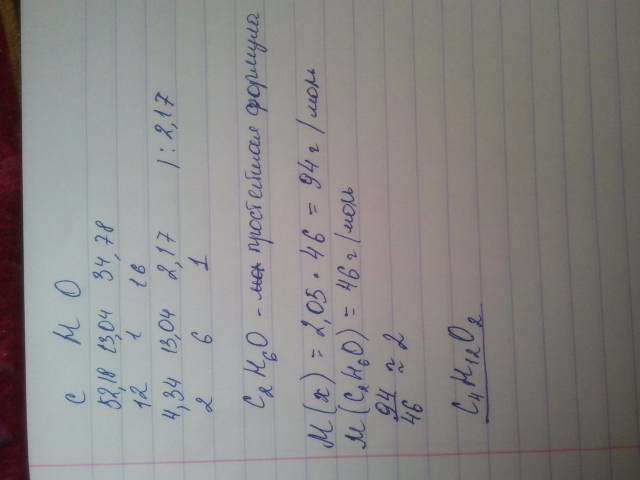 C H O
52,18 13,04 34,78
12 1 16
4,34 13,04 2,17 / : 2,17
2 6 1
C₂H₆O - простейшая формула
M(x) = 2,05 · 46 = 94 г/моль
M(C₂H₆O) = 46 г/моль
94/46 ≈ 2
C₄H₁₂O₂